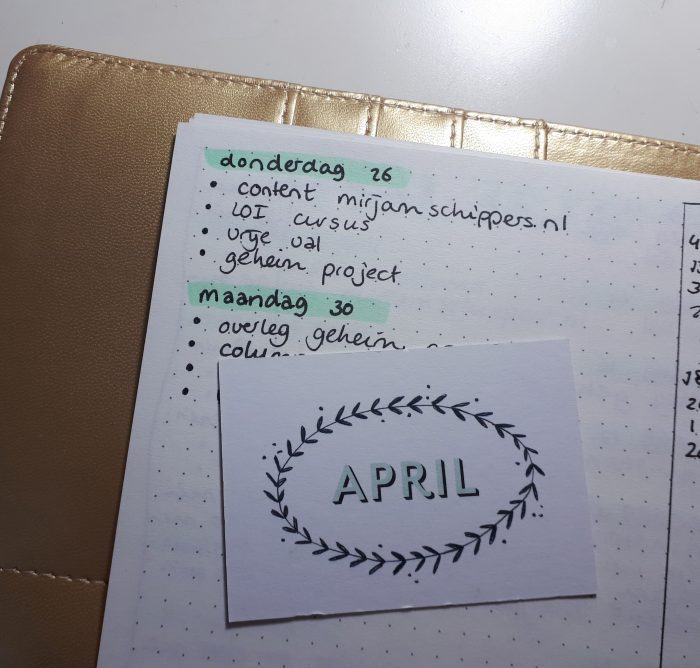 donderdag 26
• content mirjamschippers.nl
• LOI cursus
• urje val
• geheim project
maandag 30
• overleg geheim
•
•
•
APRIL
3
1